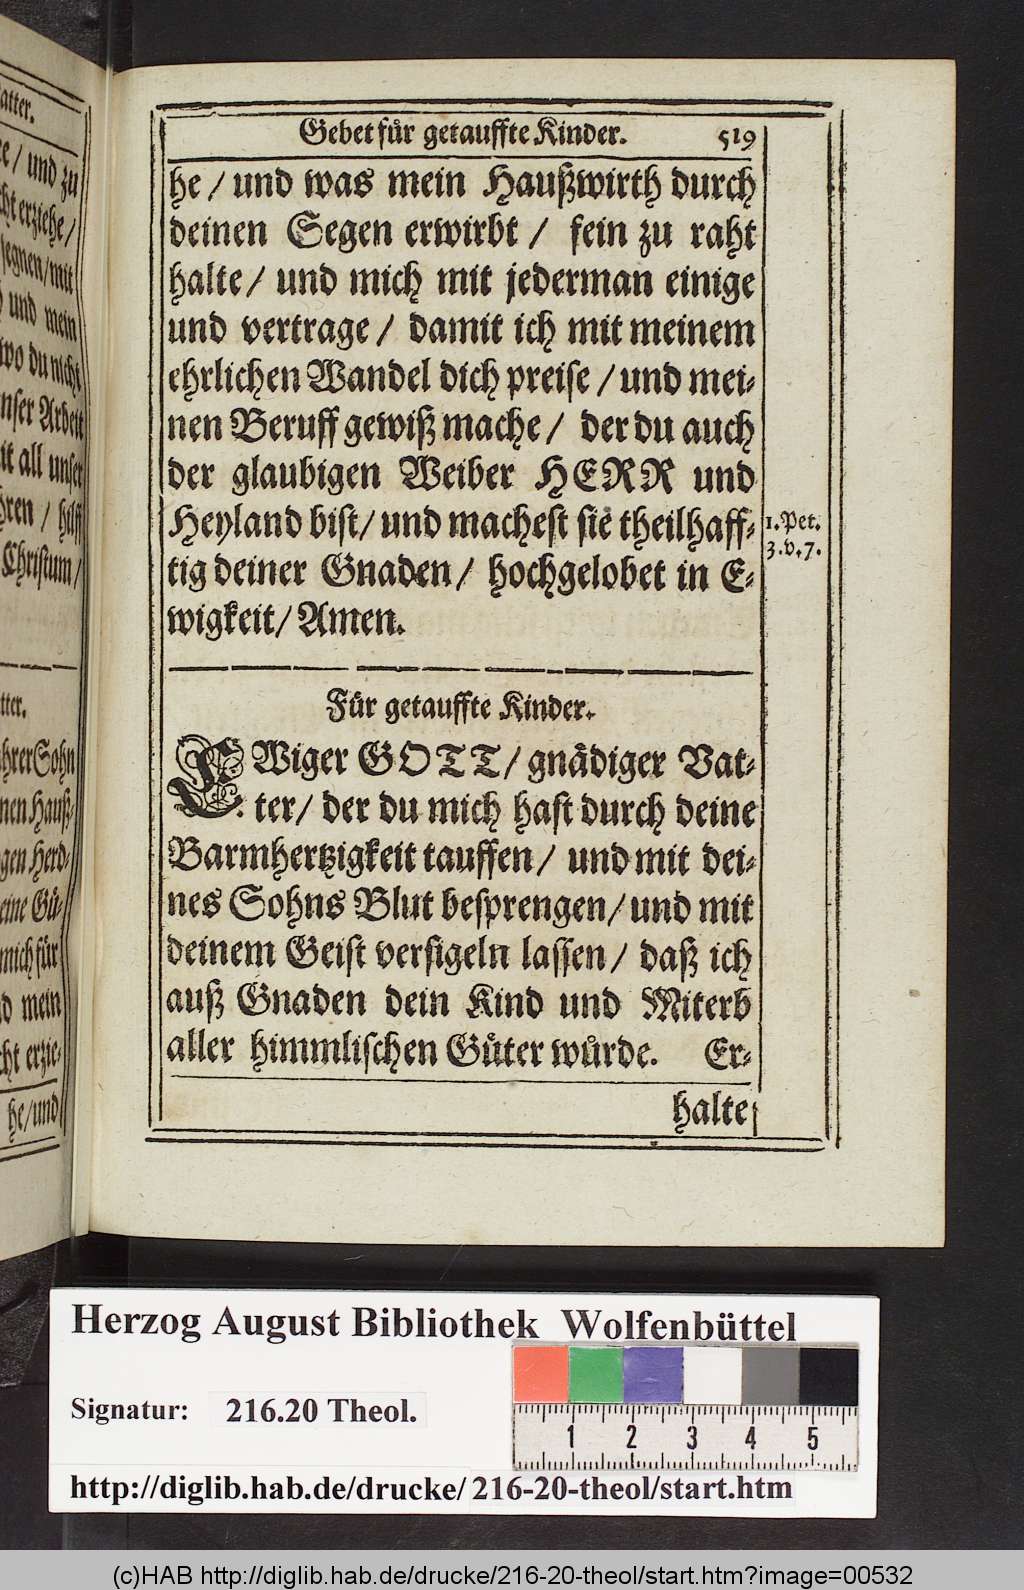 atter.
e/ und zu
cht erziehe/
segnen/mit
und mein
wo du nicht
nser Arbeit
it all unser
hren / hilff
Christum/
tter.
hrer Sohn
nen Hauß-
gen Herd-
eine Gü-
mich für
d mein
cht erzie-
he/und
Gebet fuͤr getauffte Kinder. 519
he/ und was mein Haußwirth durch
deinen Segen erwirbt / fein zu raht
halte/ und mich mit jederman einige
und vertrage/ damit ich mit meinem
ehrlichen Wandel dich preise/ und mei-
nen Beruff gewiß mache/ der du auch
der glaubigen Weiber HERR und
Heyland bist/ und machest sie theilhaff-
tig deiner Gnaden/ hochgelobet in E-
wigkeit/ Amen.
1. Pet.
3.v.7.
Fuͤr getauffte Kinder.
EWiger GOTT/ gnaͤdiger Vat-
ter/ der du mich hast durch deine
Barmhertzigkeit tauffen/ und mit dei-
nes Sohns Blut besprengen/ und mit
deinem Geist versigeln lassen/ daß ich
auß Gnaden dein Kind und Miterb
aller himmlischen Guͤter wuͤrde. Er-
halte
Herzog August Bibliothek Wolfenbüttel
Signatur: 216.20 Theol.
1 2 3 4 5
http://diglib.hab.de/drucke/216-20-theol/start.htm
(c)HAB http://diglib.hab.de/drucke/216-20-theol/start.htm?image=00532